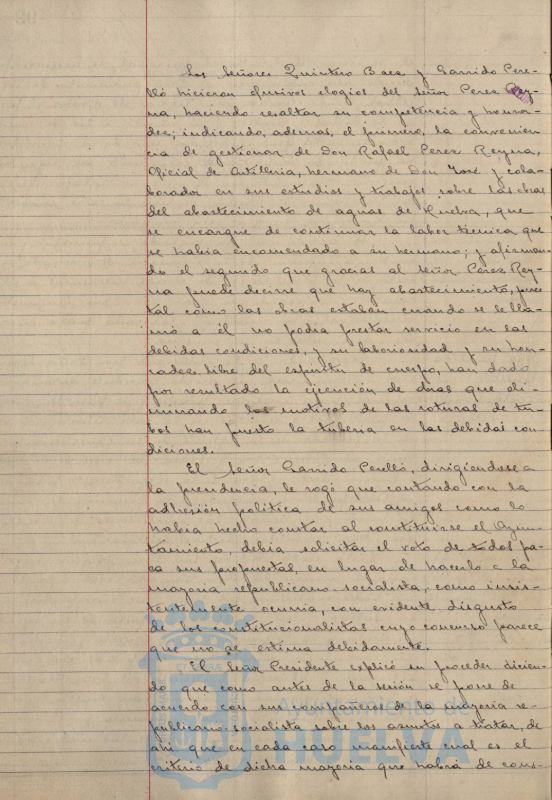 Los Señores Quintero Baez y Garrido Pere-
lló hicieron efusivos elogios del Señor Perez Rey-
na, haciendo resaltar su competencia y honra-
dez; indicando, ademas, el primero, la convenien-
cia de gestionar de Don Rafael Perez Reyna,
Oficial de Artilleria, hermano de Don José y cola-
borador en sus estudios y trabajos sobre las obras
del abastecimiento de aguas de Huelva, que
se encargue de continuar la labor técnica que
se habia encomendado a su hermano; y afirman-
do el segundo que gracias al Señor Perez Rey-
na puede decirse que hay abastecimiento, pues
tal como las obras estaban cuando se le lla-
mó a él no podia prestar servicio en las
debidas condiciones, y su laboriosidad y su hon-
radez, libre del espiritu de cuerpo, han dado
por resultado la ejecución de obras que eli-
minando los motivos de las roturas de tu-
bos han puesto la tuberia en las debidas con
diciones.
El Señor Garrido Perelló, dirigiendose a
la presidencia, le rogó que contando con la
adhesión politica de sus amigos como lo
habia hecho constar al constituirse el Ayun-
tamiento, debia solicitar el voto de todos pa-
ra sus propuestas, en lugar de hacerlo a la
mayoria republicano-socialista, como insis-
tentemente ocurria, con evidente disgusto
de los constitucionalistas cuyo concurso parece
que no se estima debidamente.
El Señor Presidente explicó su proceder dicien-
do que como antes de la sesión se pone de
acuerdo con sus compañeros de la mayoria re-
publicano-socialista sobre los asuntos a tratar, de
ahi que en cada caso manifieste cual es el
criterio de dicha mayoria que habrá de cons-
Ayuntamiento de
HUELVA